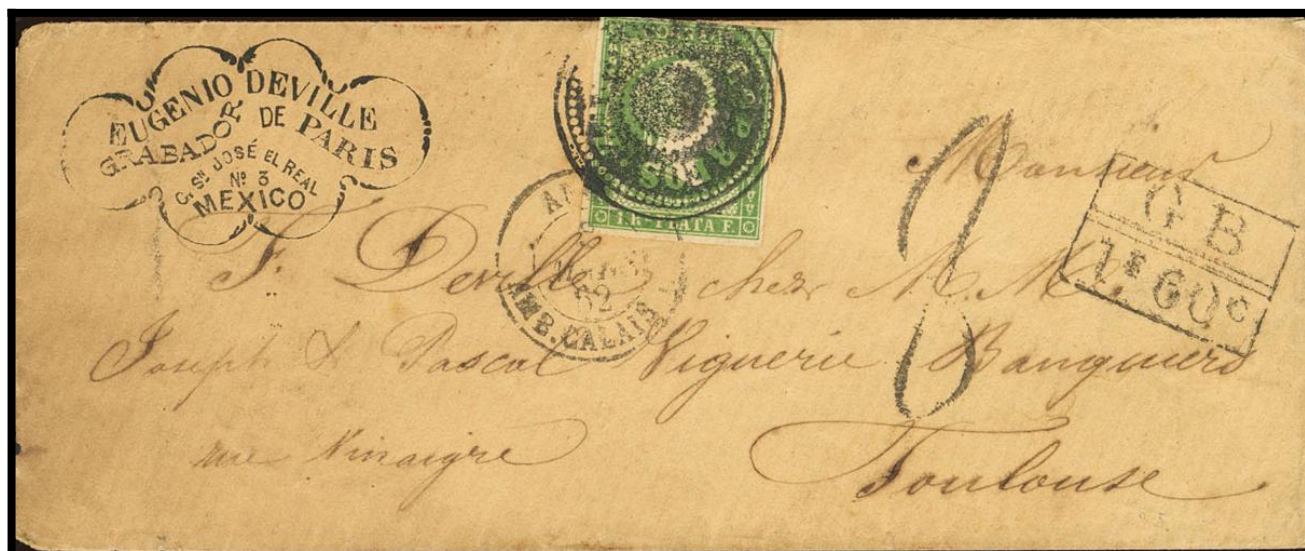 EUGENIO DEVILLE
GRABADOR DE PARIS
C. Sn JOSÉ EL REAL
No 3
MEXICO
1 R. PLATA F.
62
AMB. CALAIS
8
GB
1F 60c
Monsieur
F. Deville chez M.M.
Joseph & Pascal Viguerie Banquiers
rue Vinaigre
Toulouse